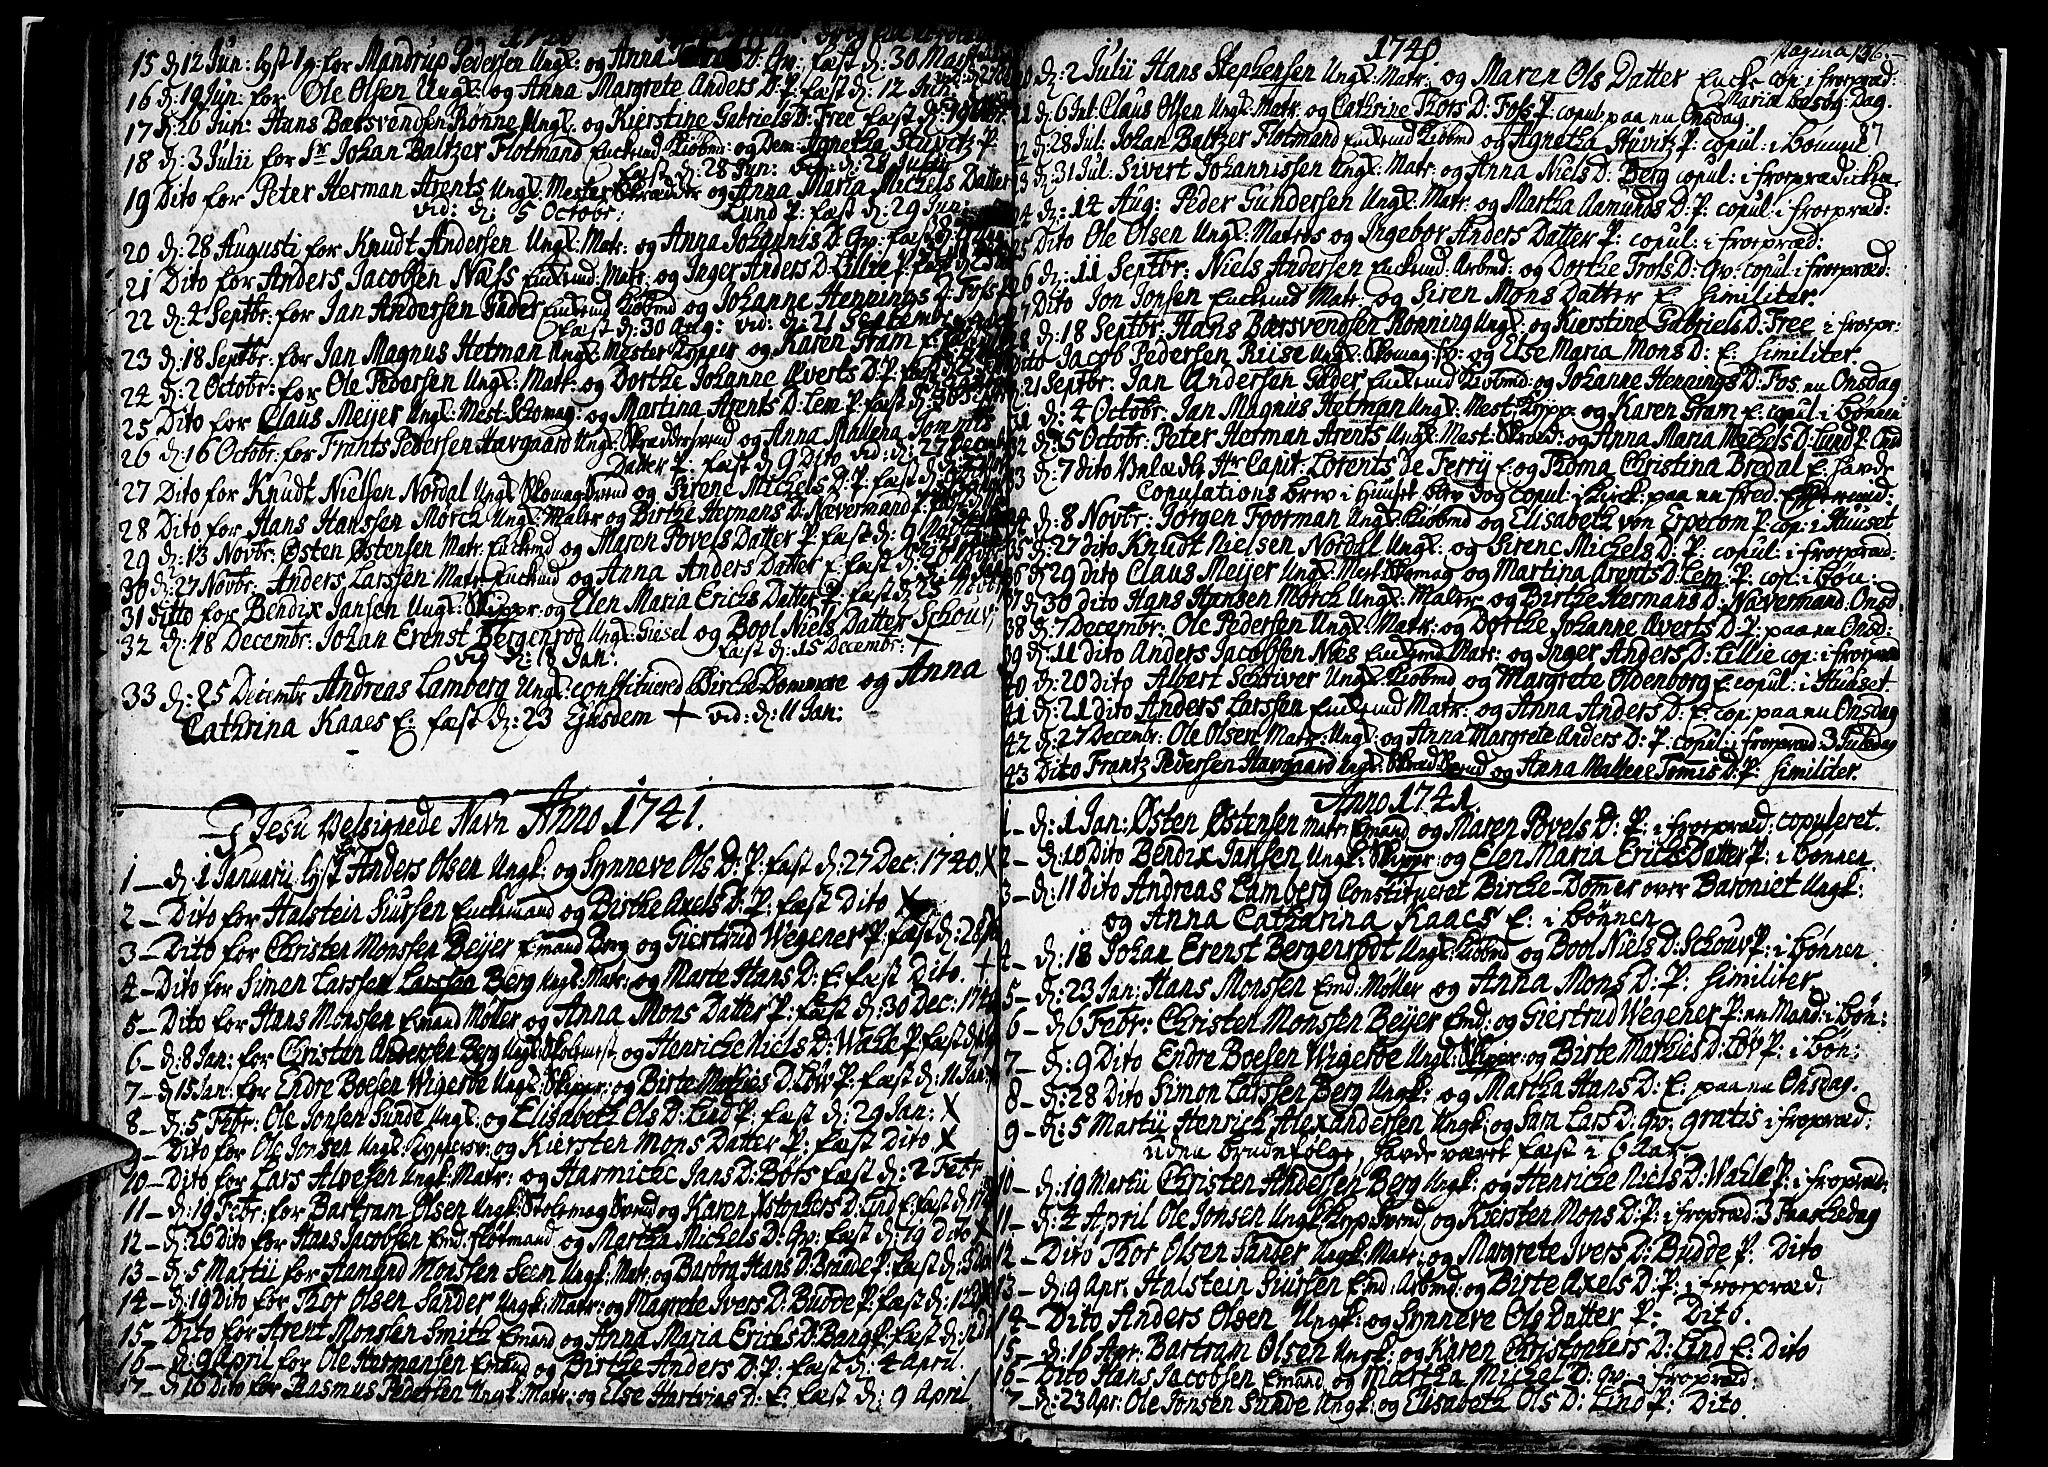 1740
15 d: 12 Jun: lyst 1 g: for Mandrup Pedersen Ungk: og Anna D: Qv: fæst d: 30 Martii
16 d: 19 Jun: for Ole Olsen Ungk: og Anna Margrete Anders D: P: fæst d: 12 Jun:
17 d: 26 Jun: Hans Bærsvendsen Rønne Ungk: og Kierstine Gabriels D: Free fæst d: 19
18 d: 3 Julii for Sr Johan Baltzer Flotmand Enckemd Kiöbmd: og Dem: Agnetha Stuvitz P:
fæst d: 28 Jun: vid: d: 28 Julii
19 Dito for Peter Herman Arents Ungk: Mester Skrædder og Anna Maria Michels Datter
vid: d: 5 Octobr: Lund P: fæst d: 29 Jun:
20 d: 28 Augusti for Knudt Andersen Ungk: Matr: og Anna Johannis D: Qv: fæst d:
21 Dito for Anders Jacobsen Næss Enkemd: Matr: og Inger Anders D: Lillie P: fæst d: 25
22 d: 2 Septbr: for Jan Andersen Gäder Enkemd Kiöbmd og Johanne Hennings D: Fos P:
fæst d: 30 Aug: vid: d: 21 Septembr
23 d: 18 Septbr: for Jan Magnus Hetman Ungk: Mester Knipper og Karen Gram E: fæst
24 d: 2 Octobr: for Ole Pedersen Ungk: Matr: og Dorthe Johanne Averts D: P: fæst d:
25 Dito for Claus Meijer Ungk: Mest: Schomag: og Martina Arents D: Lem P: fæst d: 30
26 d: 16 Octobr: for Frants Pedersen Havgaard Ungk: Skræddersvend og Anna Mallena Tommis
Datter P: fæst d: 9 Dito vid: d: 27 Decembr
27 Dito for Knudt Nielsen Nordal Ungk: Skomagsvend og Sirene Michels D: P: fæst d:
28 Dito for Hans Hanssen Mørch Ungk: Maler og Birthe Hermans D: Nævermand P: fæst
29 d: 13 Novbr: Østen Østensen Matr: Enckemd og Maren Povels Datter P: fæst d: 9
30 d: 27 Novbr: Anders Larssen Matr: Enckemd og Anna Anders Datter E: fæst d: 26
31 Ditto for Bendix Jansen Ungk: Skippr: og Elen Maria Erichs Datter P: fæst d: 25 Novbr
32 d: 18 Decembr: Johan Erenst Bergenrod Ungk: Giesel og Bool Niels Datter Schouv:
vid d: 18 Jan: fæst d: 15 Decembr: +
33 d: 25 Decembr Andreas Lamberg Ungk: constituered Bircke Dommere og Anna
Cathrina Kaaes E: fæst d: 23 Ejusdem + vid: d: 11 Jan:
I Jesu Velsignede Navn Anno 1741.
1 – d: 1 Januarii lyst for Anders Olsen Ungk: og Synneve Ols D: P: fæst d: 27 Dec: 1740. X
2 – Dito for Halstein Siursen Enckemand og Birthe Axels D: P: fæst Dito X
3 – Dito for Christen Monssen Beijer Emand Borg og Giertrud Wegener P: fæst d: 28
4 – Dito for Simen Larssen Berg Ungk: Matr: og Marte Hans D: E: fæst Dito. +
5 – Dito for Hans Monssen Emand Møller og Anna Mons Datter P: fæst d: 30 Dec: 1740
6 – d: 8 Jan: for Christen Andersen Berg Ungk: Skolemest og Henricke Niels D: Wahle P: fæst d:
7 – d: 15 Jan: for Endre Boesen Wigerbe Ungk: Skippr: og Birte Mathies D: Löv P: fæst d: 11 Jan:
8 – d: 5 Febr: Ole Jonsen Sunde Ungk: og Elisabeth Ols D: Lind P: fæst d: 29 Jan: X
9 – Dito for Ole Jonsen Ungk: Kyppersv: og Kiersten Mons Datter P: fæst Dito X
10 – Dito for Lars Alvesen Ungk: Matr: og Harmicke Jans D: Børs fæst d: 2 Febr:
11 – d: 19 Febr: for Bartram Olsen Ungk: Stolemag Svend og Karen Xstophers D: Lind E: fæst d: 17
12 – d: 26 Dito for Hans Jacobsen Emd: Fløtmand og Martha Michels D: Qv: fæst d: 19 Dito X
13 – d: 5 Martii for Aamund Monssen Seem Ungk: Matr: og Barbra Hans D: Brade P: fæst d: 3
14 – d: 19 Dito for Thor Olsen Sander Ungk: Matr: og Magrete Ivers D: Budde P: fæst d: 12
15 – Dito for Arent Monsen Smith Emand og Anna Maria Erichs D: Bang P: fæst d: 11
16 – d: 9 April for Ole Hermansen Emand og Birthe Anders D: P: fæst d: 4 April.
17 – d: 16 Dito for Rasmus Pedersen Ungk: Matr: og Else Hartvigs D: E: fæst d: 9 April.
1740.
Pagina 136
87
20 d: 2 Julii Hans Stephensen Ungk: Matr: og Maren Ols Datter Encke cop: i froepræd:
Mariæ besøg: Dag.
21 d: 6 Jul: Claus Olsen Ungk: Matr: og Cathrine Thors D: Foss P: copul: paa nu Onsdag
22 d: 28 Jul: Johan Baltzer Flotmand Enckemd Kiöbmd og Agnetha Stuvitz P: copul: i bønnen
23 d: 31 Jul: Sivert Johannissen Ungk: Matr: og Anna Niels D: Berg copul: i froeprædicken
24 d: 14 Aug: Peder Gundersen Ungk: Matr: og Martha Aamunds D: P: copul: i froepræd:
25 Dito Ole Olsen Ungk: Matros og Ingebor Anders Datter P: copul: i froepræd:
26 d: 11 Septbr: Niels Andersen Enckemd: Arbmd: og Dorthe Trols D: Qv: copul: i froepræd:
27 Dito Jon Jonsen Enckemd Matr: og Siren Mons Datter E: similiter.
28 d: 18 Septbr: Hans Bærsvendsen Rønning Ungk: og Kierstine Gabriels D: Free i froepr:
Dito Jacob Pedersen Riise Ungk: Skomag: sv: og Else Maria Mons D: E: similiter
d: 21 Septbr: Jan Andersen Gäder Enckemd Kiöbmd: og Johanne Hennings D: Fos nu Onsdag
31 d: 4 Octobr: Jan Magnus Hetman Ungk: Mest: Knipp: og Karen Gram E: copul: i bønnen
32 d: 5 Octobr: Peter Herman Arents Ungk: Mest: Skræd: og Anna Maria Michels D: Lund P: Onsd
33 d: 7 dito Velædle Hr Capit: Lorents de Ferrÿ E: og Froma Christina Bredal E: havde
Copulations brev i Huuset blev dog copul: i kirck: paa nu Fred: Eftermid:
34 d: 8 Novbr: Jørgen Foorman Ungk: Kiöbmd og Elisabeth von Erpecom P: cop: i Huuset
35 d: 27 dito Knudt Nielsen Nordal Ungk: og Sirene Michels D: P: copul: i froepræd:
36 d: 29 dito Claus Meijer Ungk: Mest: Skomag og Martina Arents D: Lem P: cop: i bøn:
37 d: 30 dito Hans Hansen Mørch Ungk: Maler og Birthe Hermans D: Nævermand: Onsd
38 d: 7 Decembr: Ole Pedersen Ungk: Matr: og Dorthe Johanne Averts D: P: paa nu Onsd:
39 d: 11 dito Anders Jacobsen Næs Enckemd Matr: og Inger Anders D: Lillie cop: i froepræd
40 d: 20 Dito Albert Schriver Ungk: Kiöbmd og Margrete Oldenborg E: copul: i Huuset
41 d: 21 Dito Anders Larssen Enckemd Matr: og Anna Anders D: E: cop: paa nu Onsdag
42 d: 27 Decembr: Ole Olsen Matr: Ungk: og Anna Margrete Anders D: P: copul: i froepræd: 3 Juledag
43 Dito Frantz Pedersen Havgaard Ungk: Skræd Svend og Anna Mallene Tomis D: P: similiter.
Anno 1741.
1 – d: 1 Jan: Østen Østensen Matr: Emand og Maren Povels D: P: i froepræd: copuleret.
2 – d: 10 Dito Bendix Jansen Ungk: Skippr: og Elen Maria Erichs Datter P: i bønnen
3 – d: 11 Dito Andreas Lamberg Constitueret Bircke-Domer over Baroniet Ungk:
og Anna Catharina Kaaes E: i bønnen
4 – d: 18 Johan Erenst Bergenrodt Ungk: Kiöbmd og Bool Niels D: Schouv P: i bønnen
5 – d: 23 Jan: Hans Monssen Emd: Møller og Anna Mons D: P: similiter
6 – d: 6 Febr: Christen Monssen Beijer Emd: og Giertrud Wegener P: en Mand: i bøn:
7 – d: 9 Dito Endre Boesen Wigerbe Ungk: Skippr: og Birte Mathies D: Löv P: i bøn:
8 – d: 28 Dito Simon Larssen Berg Ungk: og Martha Hans D: E: paa nu Onsdag.
9 – d: 5 Martii Henrich Alexandersen Ungk: og Sara Lars D: Qv: gratis i froepræd:
uden brudefølge, havde været fæst i 6 Aar
10 – d: 19 Martii Christen Andersen Berg Ungk: og Henricke Niels D: Wahle P: i froepræd:
11 – d: 4 April Ole Jonsen Ungk Kyp: Svend, og Kiersten Mons D: P: i froepræd: 3 Paaskedag
12 – Dito Thor Olsen Sander Ungk: Matr: og Margrete Ivers D: Budde P: Dito
13 – d: 9 Apr: Halstein Siursen Emd: Arbmd og Birte Axels D: P: i froepræd:
14 – Dito Anders Olsen Ungk: og Synneve Ols Datter P: Dito.
15 – d: 16 Apr: Bartram Olsen Ungk: og Karen Christophers D: Lind E: Dito
16 – Dito Hans Jacobsen Emand og Martha Michel D: Qv: i froepræd:
17 – d: 23 Apr: Ole Jonsen Sunde Ungk: og Elisabeth Ols D: Lind P: Dito.